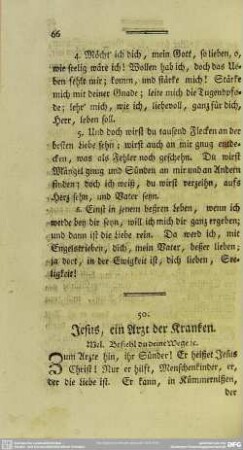 66
4. Möcht' ich dich, mein Gott, so lieben, o,
wie seelig wäre ich! Wollen hab ich, doch das Ue-
ben fehlt mir; komm, und stärke mich! Stärke
mich mit deiner Gnade; leite mich die Tugendpfa-
de; lehr' mich, wie ich, liebevoll, ganz für dich,
Herr, leben soll.
5. Und doch wirst du tausend Flecken an der
besten Liebe sehn; wirst auch an mir gnug entde-
cken, was als Fehler noch geschehn. Du wirst
Mängel gnug und Sünden an mir und an Andern
finden; doch ich weiß, du wirst verzeihn, aufs
Herz sehn, und Vater seyn.
6. Einst in jenem bessren Leben, wenn ich
werde bey dir seyn, will ich mich dir ganz ergeben;
und dann ist die Liebe rein. Da werd ich, mit
Engelstrieben, dich, mein Vater, besser lieben;
ja dort, in der Ewigkeit ist, dich lieben, See-
ligkeit!
50.
Jesus, ein Arzt der Kranken.
Mel. Befiehl du deine Wege ꝛc.
Zum Arzte hin, ihr Sünder! Er heißet Jesus
Christ! Nur er hilft, Menschenkinder, er,
der die Liebe ist. Er kann, in Kümmernißen,
der